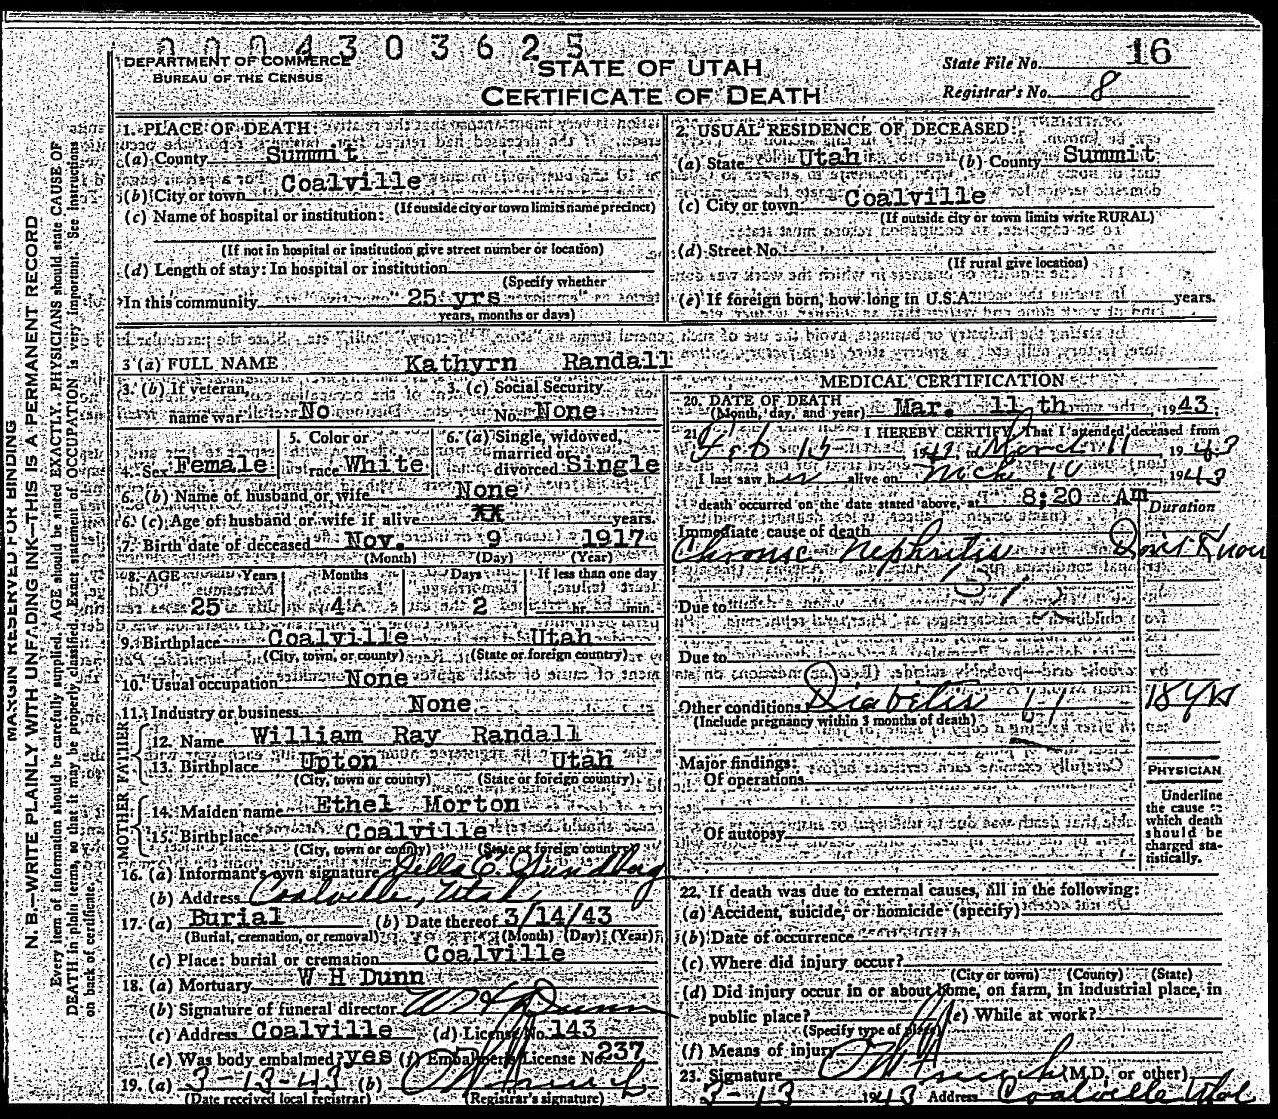 0 0 0 4 3 0 3 6 2 5
DEPARTMENT OF COMMERCE
BUREAU OF THE CENSUS
STATE OF UTAH
CERTIFICATE OF DEATH
State File No. 16
Registrar's No. 8
MARGIN RESERVED FOR BINDING
N. B.—WRITE PLAINLY WITH UNFADING INK—THIS IS A PERMANENT RECORD
Every item of information should be carefully supplied. AGE should be stated EXACTLY. PHYSICIANS should state CAUSE OF
DEATH in plain terms, so that it may be properly classified. Exact statement of OCCUPATION is very important. See instructions
on back of certificate.
1. PLACE OF DEATH:
(a) County Summit
(b) City or town Coalville
(If outside city or town limits name precinct)
(c) Name of hospital or institution:
(If not in hospital or institution give street number or location)
(d) Length of stay: In hospital or institution
(Specify whether
In this community 25 yrs
years, months or days)
2. USUAL RESIDENCE OF DECEASED:
(a) State Utah (b) County Summit
(c) City or town Coalville
(If outside city or town limits write RURAL)
(d) Street No.
(If rural give location)
(e) If foreign born, how long in U.S.A. years.
3 (a) FULL NAME Kathyrn Randall
3. (b) If veteran,
name war No
3. (c) Social Security
No. None
4. Sex Female
5. Color or
race White
6. (a) Single, widowed,
married or
divorced Single
6. (b) Name of husband or wife None
6. (c) Age of husband or wife if alive XX years.
7. Birth date of deceased Nov. 9 1917
(Month) (Day) (Year)
8. AGE Years Months Days If less than one day
25 4 2 hr. min.
9. Birthplace Coalville Utah
(City, town, or county) (State or foreign country)
10. Usual occupation None
11. Industry or business None
FATHER
12. Name William Ray Randall
13. Birthplace Upton Utah
(City, town or county) (State or foreign country)
MOTHER
14. Maiden name Ethel Morton
15. Birthplace Coalville
(City, town or county) (State or foreign country)
16. (a) Informant's own signature Della E.
(b) Address Coalville, Utah
17. (a) Burial (b) Date thereof 3/14/43
(Burial, cremation, or removal) (Month) (Day) (Year)
(c) Place: burial or cremation Coalville
18. (a) Mortuary W H Dunn
(b) Signature of funeral director W H Dunn
(c) Address Coalville (d) License No. 143
(e) Was body embalmed? yes (f) Embalmer's License No. 237
19. (a) 3-13-43 (b)
(Date received local registrar) (Registrar's signature)
MEDICAL CERTIFICATION
20. DATE OF DEATH
(Month, day, and year) Mar. 11 th 1943.
21. I HEREBY CERTIFY, That I attended deceased from
Feb 15 1942, to March 11 1943
I last saw her alive on Mch 10 1943
death occurred on the date stated above, at 8;20 Am
Duration
Immediate cause of death
Chronic Nephritis Don't Know
131
Due to
Due to
Other conditions Diabetis 61 18 yrs
(Include pregnancy within 3 months of death)
Major findings:
Of operations
Of autopsy
PHYSICIAN
Underline
the cause
which death
should be
charged sta-
tistically.
22. If death was due to external causes, fill in the following:
(a) Accident, suicide, or homicide (specify)
(b) Date of occurrence
(c) Where did injury occur?
(City or town) (County) (State)
(d) Did injury occur in or about home, on farm, in industrial place, in
public place? (e) While at work?
(Specify type of place)
(f) Means of injury
23. Signature (M.D. or other)
3-13 1943 Address Coalville Utah